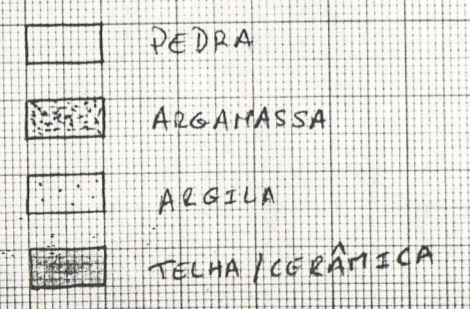 PEDRA
ARGAMASSA
ARGILA
TELHA/CERÂMICA